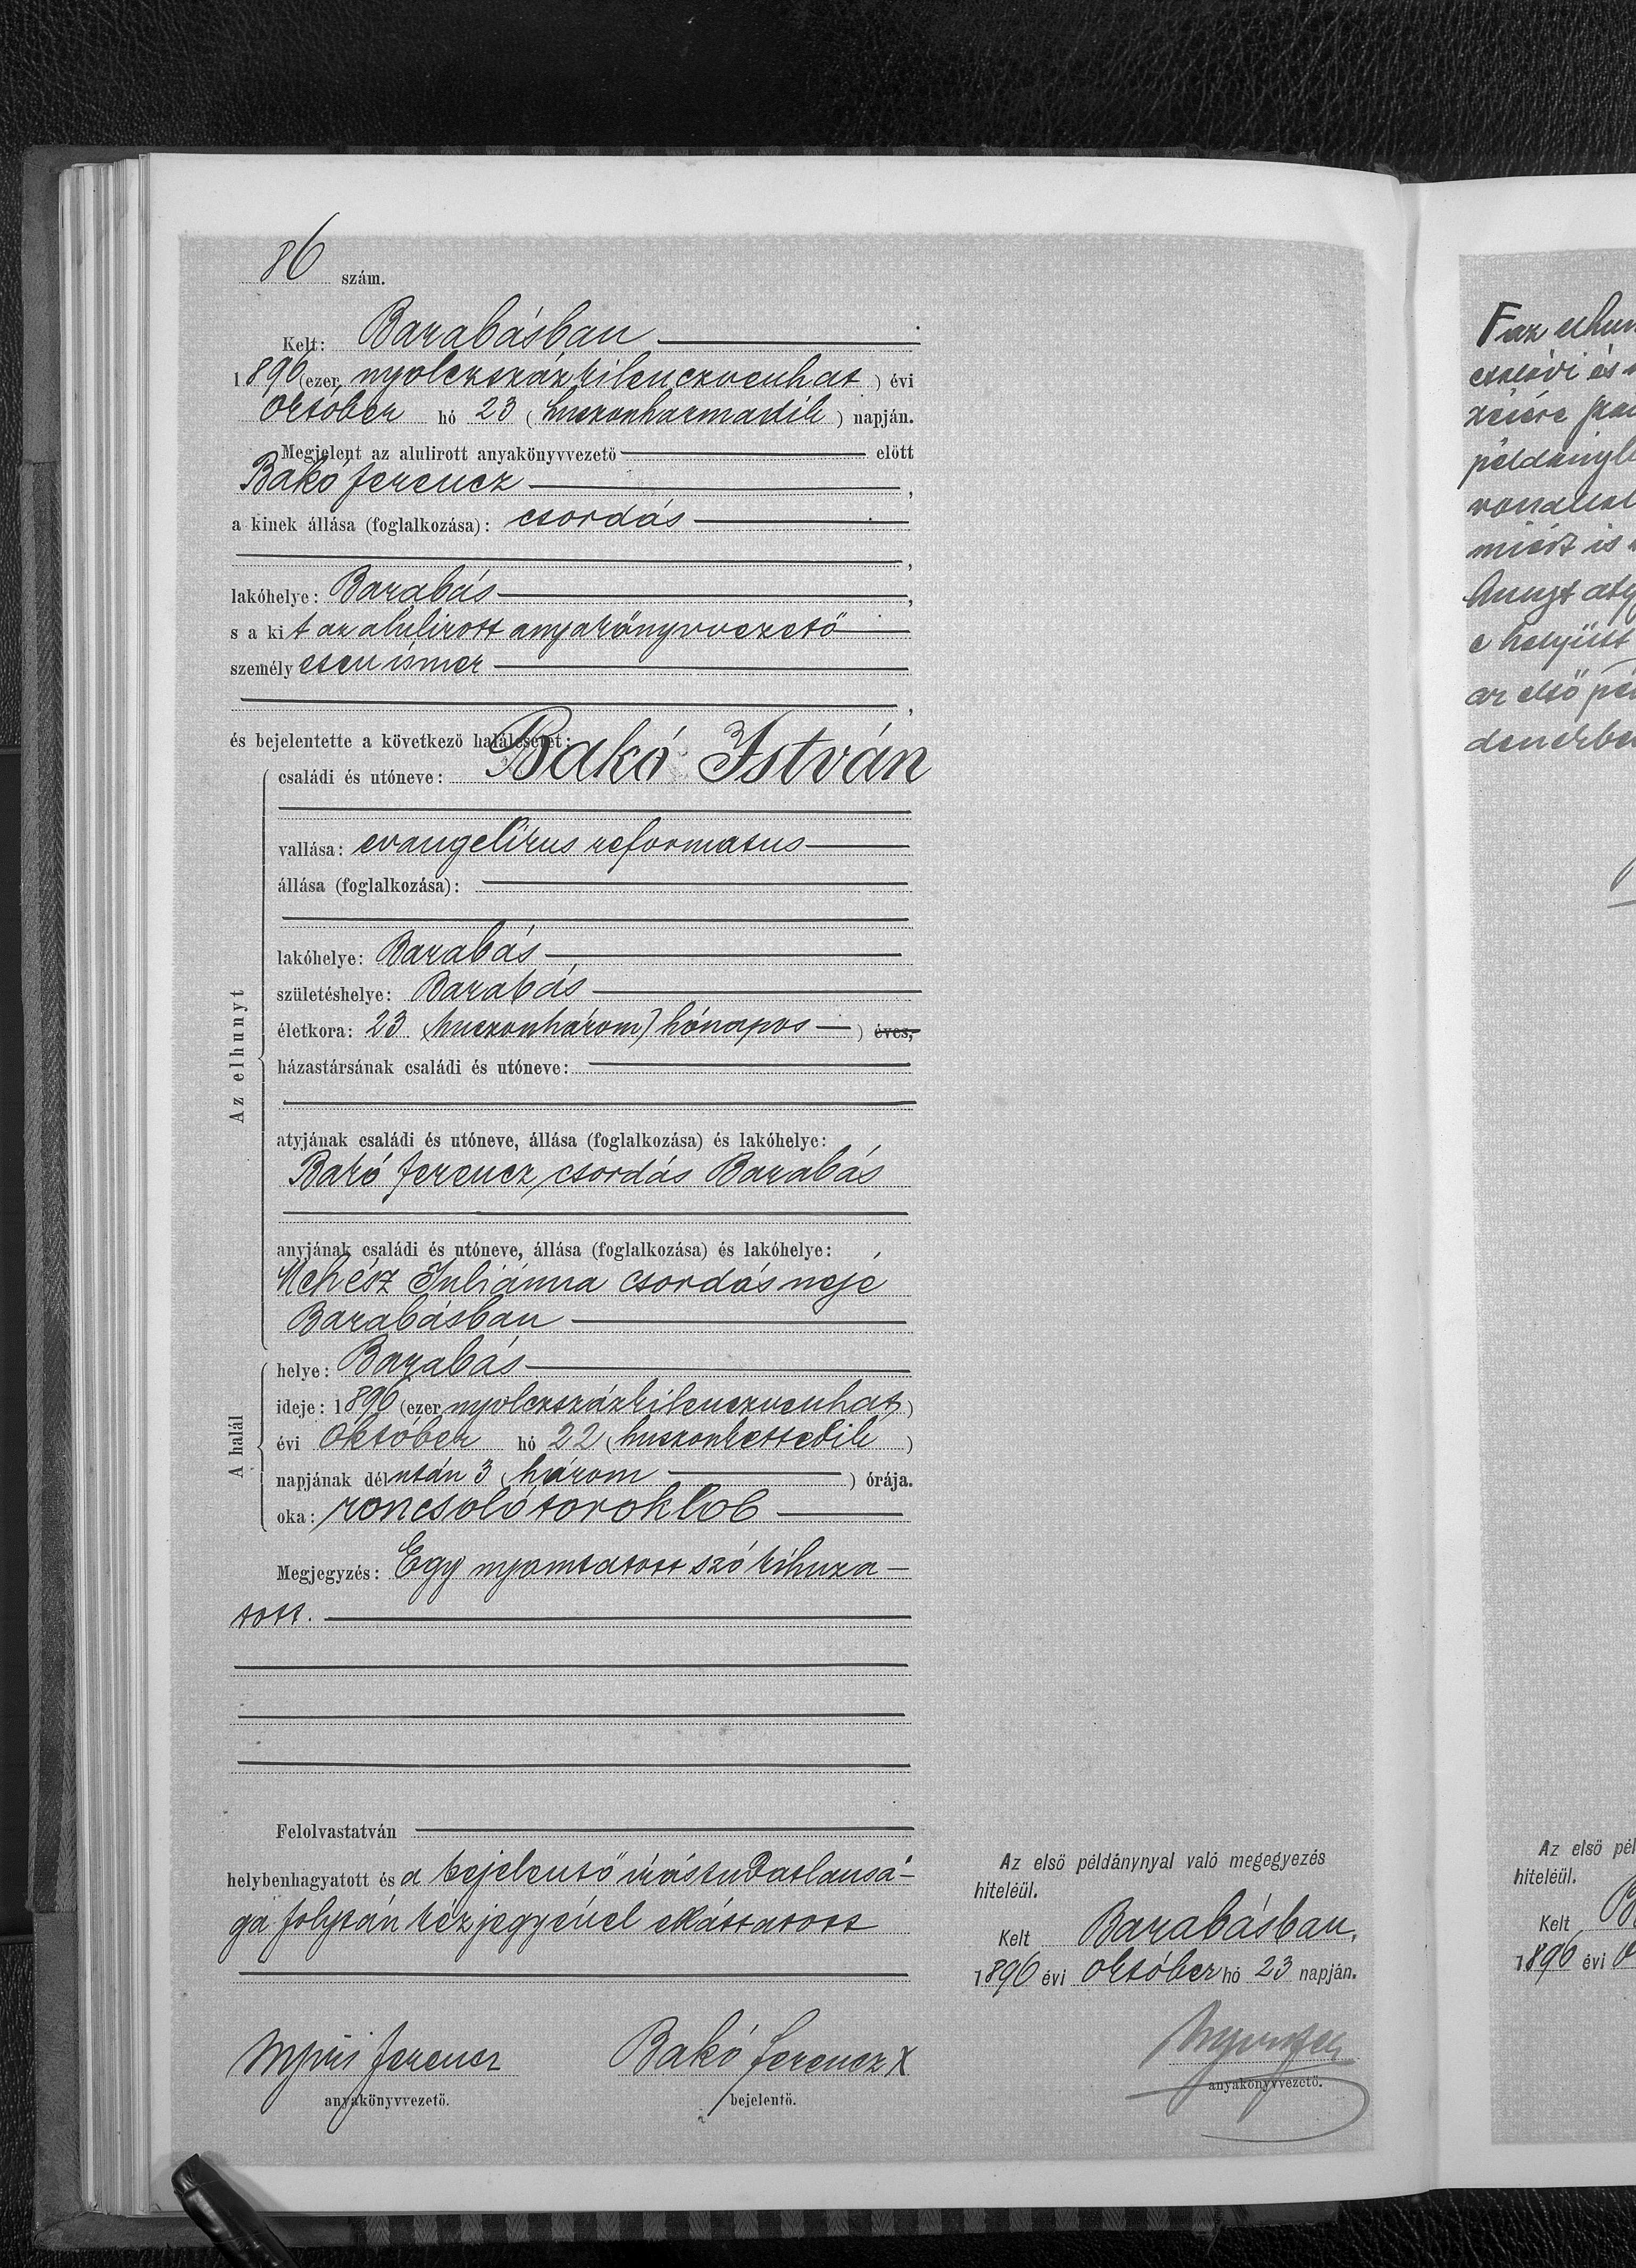 86 szám.
Kelt: Barabásban
1896 (ezer nyolczszázkilenczvenhat) évi
Október hó 23 (huszonharmadik) napján.
Megjelent az alulirott anyakönyvvezető előtt
Bakó Ferencz,
a kinek állása (foglalkozása): csordás
,
lakóhelye: Barabás,
s a kit az alulirott anyakönyvvezető
személyesen ismer
,
és bejelentette a következő halálesetet:
családi és utóneve: Bakó István
vallása: evangelikus reformatus
állása (foglalkozása):
lakóhelye: Barabás
születéshelye: Barabás
életkora: 23 (huszonhárom) hónapos ) éves,
házastársának családi és utóneve:
atyjának családi és utóneve, állása (foglalkozása) és lakóhelye:
Bakó Ferencz, csordás Barabás
anyjának családi és utóneve, állása (foglalkozása) és lakóhelye:
Méhész Juliánna csordás neje
Barabásban
Az elhunyt
helye: Barabás
ideje: 1896 (ezer nyolczszázkilenczvenhat)
évi Október hó 22 (huszonkettedik)
napjának délután 3 (három) órája.
oka: roncsoló toroklob
A halál
Megjegyzés: Egy nyomtatott szó kihuza-
tott.
Felolvastatván
helybenhagyatott és a bejelentő irástudatlansá-
ga folytán kézjegyével elláttatott
Nyiri Ferencz
anyakönyvvezető.
Bakó Ferencz X
bejelentő.
Az első példánynyal való megegyezés
hiteléül.
Kelt Barabásban,
1896 évi Október hó 23 napján.
anyakönyvvezető.
F az elhun
családi és
részére
példányb
miért is
e helyütt
az első pél
Az első pél
hiteléül.
Kelt
1896 évi